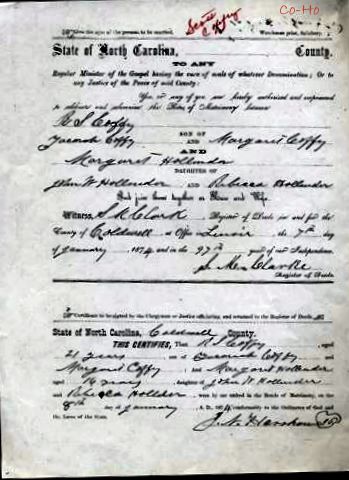 Co-Ho
Give the ages of the persons to be married.
State of North Carolina, County.
TO ANY
Regular Minister of the Gospel having the care of souls of whatever Denomination; Or to
any Justice of the Peace of said County:
You are hereby authorized and empowered
to the Rites of Matrimony between
R S Coffy
SON OF
Coffy AND Margaret Coffy
AND
Margaret Hollender
DAUGHTER OF
John W Hollender AND Rebecca Hollender
And join them together as Man and Wife.
Witness, Register of Deeds in and for the
County of Caldwell at Office Lenoir the 7th day
of January 1874 and in the 97th year of our Independence.
Clarke
Register of Deeds.
Certificate to be signed by the Clergyman or Justice officiating, and returned to the Register of Deeds.
State of North Carolina, Caldwell County.
THIS CERTIFIES, That R S Coffy aged
21 years son of Coffy and
Margaret Coffy And Margaret Hollender
aged years, daughter of John W Hollender
and Rebecca were by me united in the Bonds of Matrimony, on the
8th day of January A. D., 1874 conformably to the Ordinance of God and
the Laws of the State.